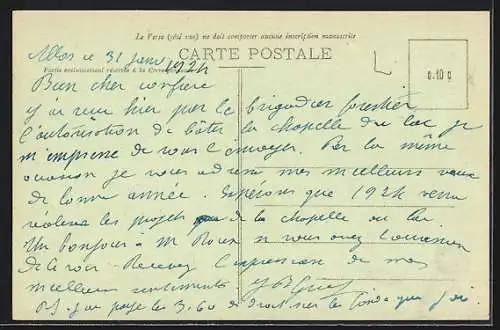 Le Verso (côté vue) ne doit comporter aucune inscription manuscrite
CARTE POSTALE
Allos le 31 janv 1924
Partie exclusivement réservée à la Correspondance
0.10 c
Bien cher confrère
J'ai reçu hier par le brigadier forestier
l'autorisation de bâtir la chapelle du lac je
m'empresse de vous l'envoyer. Par la même
occasion je vous adresse mes meilleurs vœux
de bonne année. Espérons que 1924 verra
les projets de la chapelle au lac.
Un bonjour à M si vous avez l'occasion
de le voir. Recevez l'expression de mes
meilleurs sentiments
P.S. J'ai payé les 3.60 de droit sur les fonds que j'ai